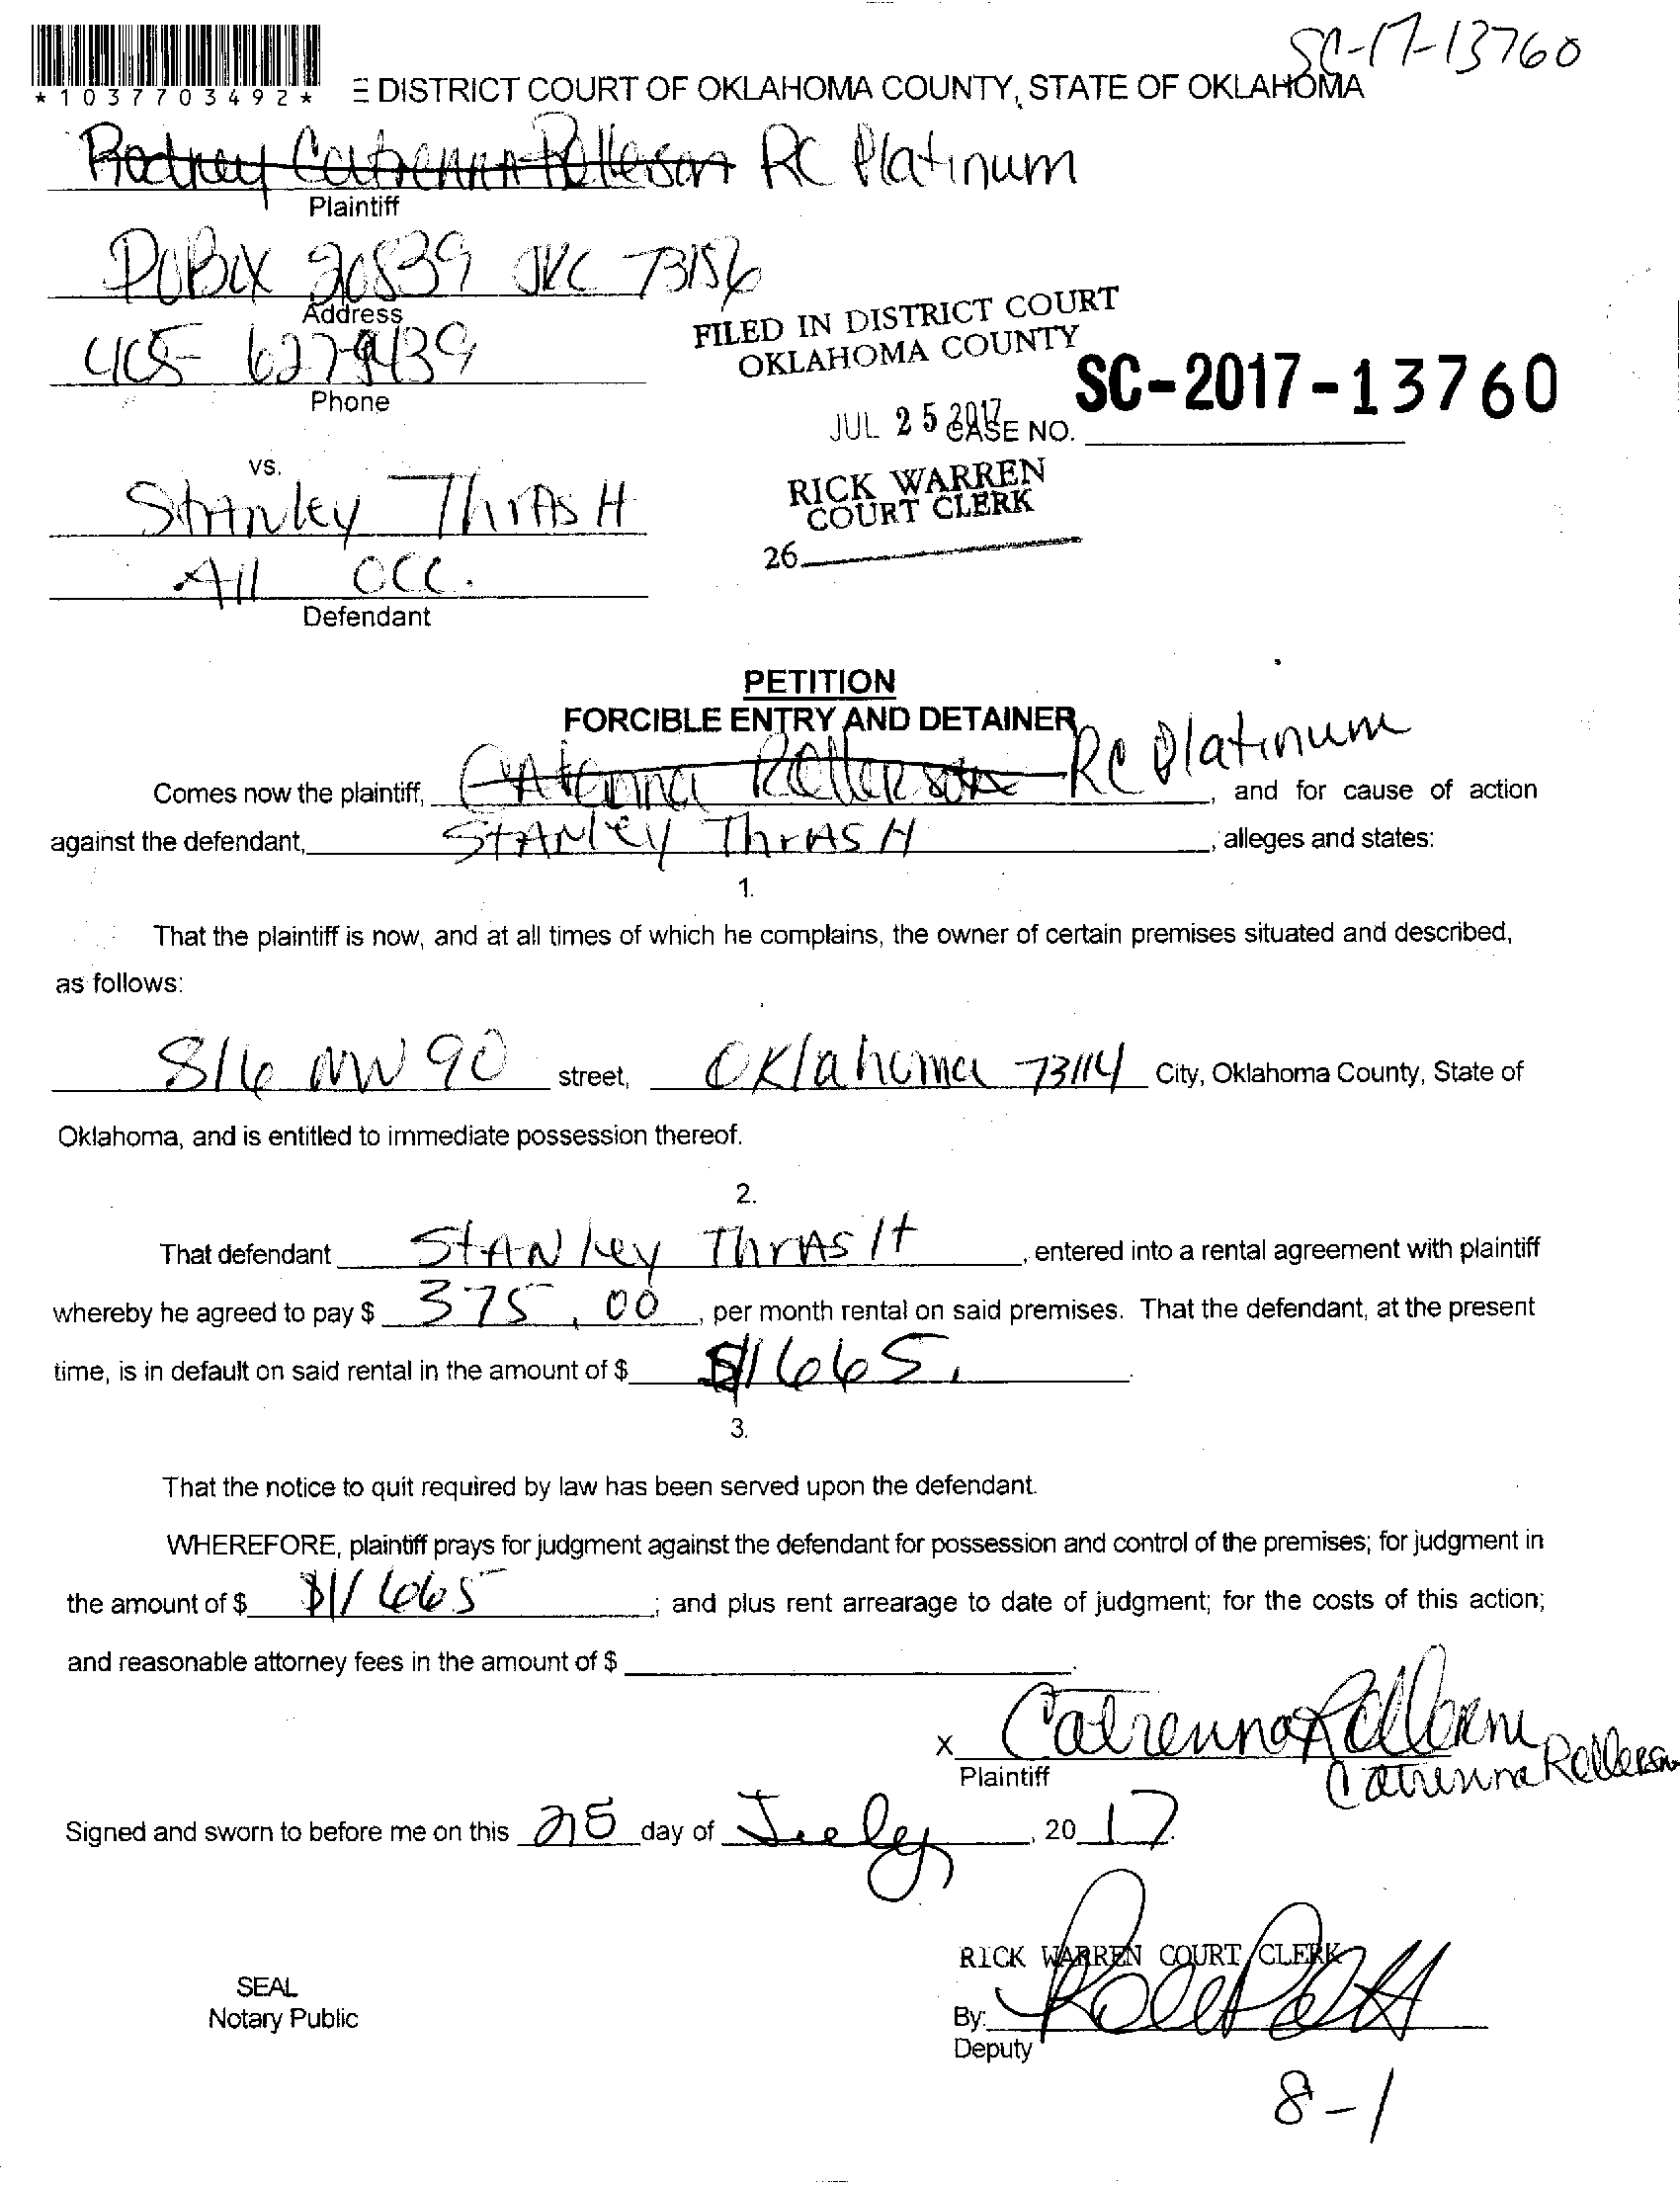 SC-17-13760
*1037703492*
E DISTRICT COURT OF OKLAHOMA COUNTY, STATE OF OKLAHOMA
Rodney Catrenna Rollerson RC Platinum
Plaintiff
PO Box 20839 OKC 73156
Address
405 627-9439
Phone
FILED IN DISTRICT COURT
OKLAHOMA COUNTY
JUL 25 2017
CASE NO. SC-2017-13760
RICK WARREN
COURT CLERK
26
vs.
Stanley Thrash
All Occ.
Defendant
PETITION
FORCIBLE ENTRY AND DETAINER
Comes now the plaintiff, Catrenna Rollerson RC Platinum, and for cause of action
against the defendant, Stanley Thrash, alleges and states:
1.
That the plaintiff is now, and at all times of which he complains, the owner of certain premises situated and described,
as follows:
816 NW 90 street, Oklahoma 73114 City, Oklahoma County, State of
Oklahoma, and is entitled to immediate possession thereof.
2.
That defendant Stanley Thrash, entered into a rental agreement with plaintiff
whereby he agreed to pay $ 375.00, per month rental on said premises. That the defendant, at the present
time, is in default on said rental in the amount of $ $1665.
3.
That the notice to quit required by law has been served upon the defendant.
WHEREFORE, plaintiff prays for judgment against the defendant for possession and control of the premises; for judgment in
the amount of $ $1665; and plus rent arrearage to date of judgment; for the costs of this action;
and reasonable attorney fees in the amount of $
x Catrenna Rollerson
Plaintiff
Catrenna Rollerson
Signed and sworn to before me on this 25 day of July, 2017.
RICK WARREN COURT CLERK
SEAL
Notary Public
By:
Deputy
8-1